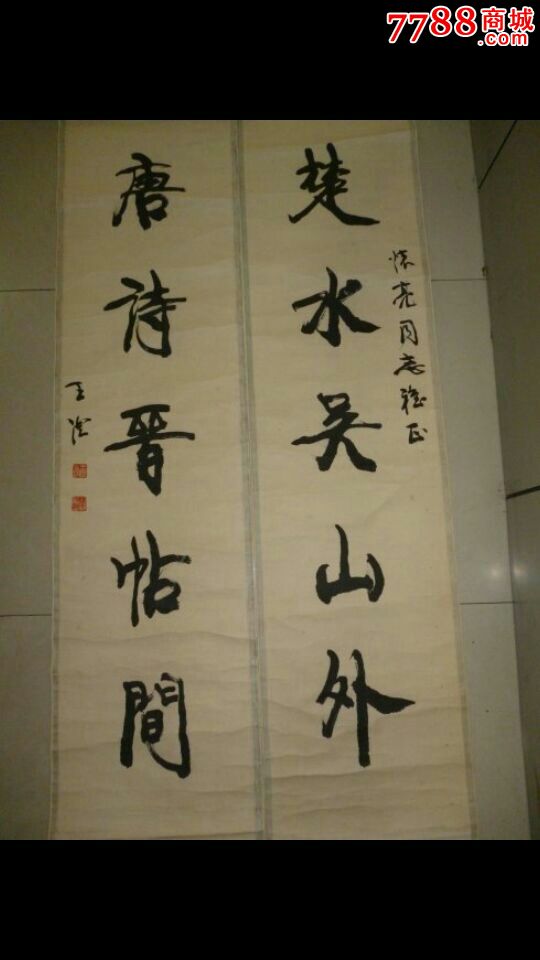 7788商城
.com
楚水吴山外
怀亮同志雅正
唐诗晋帖間
王